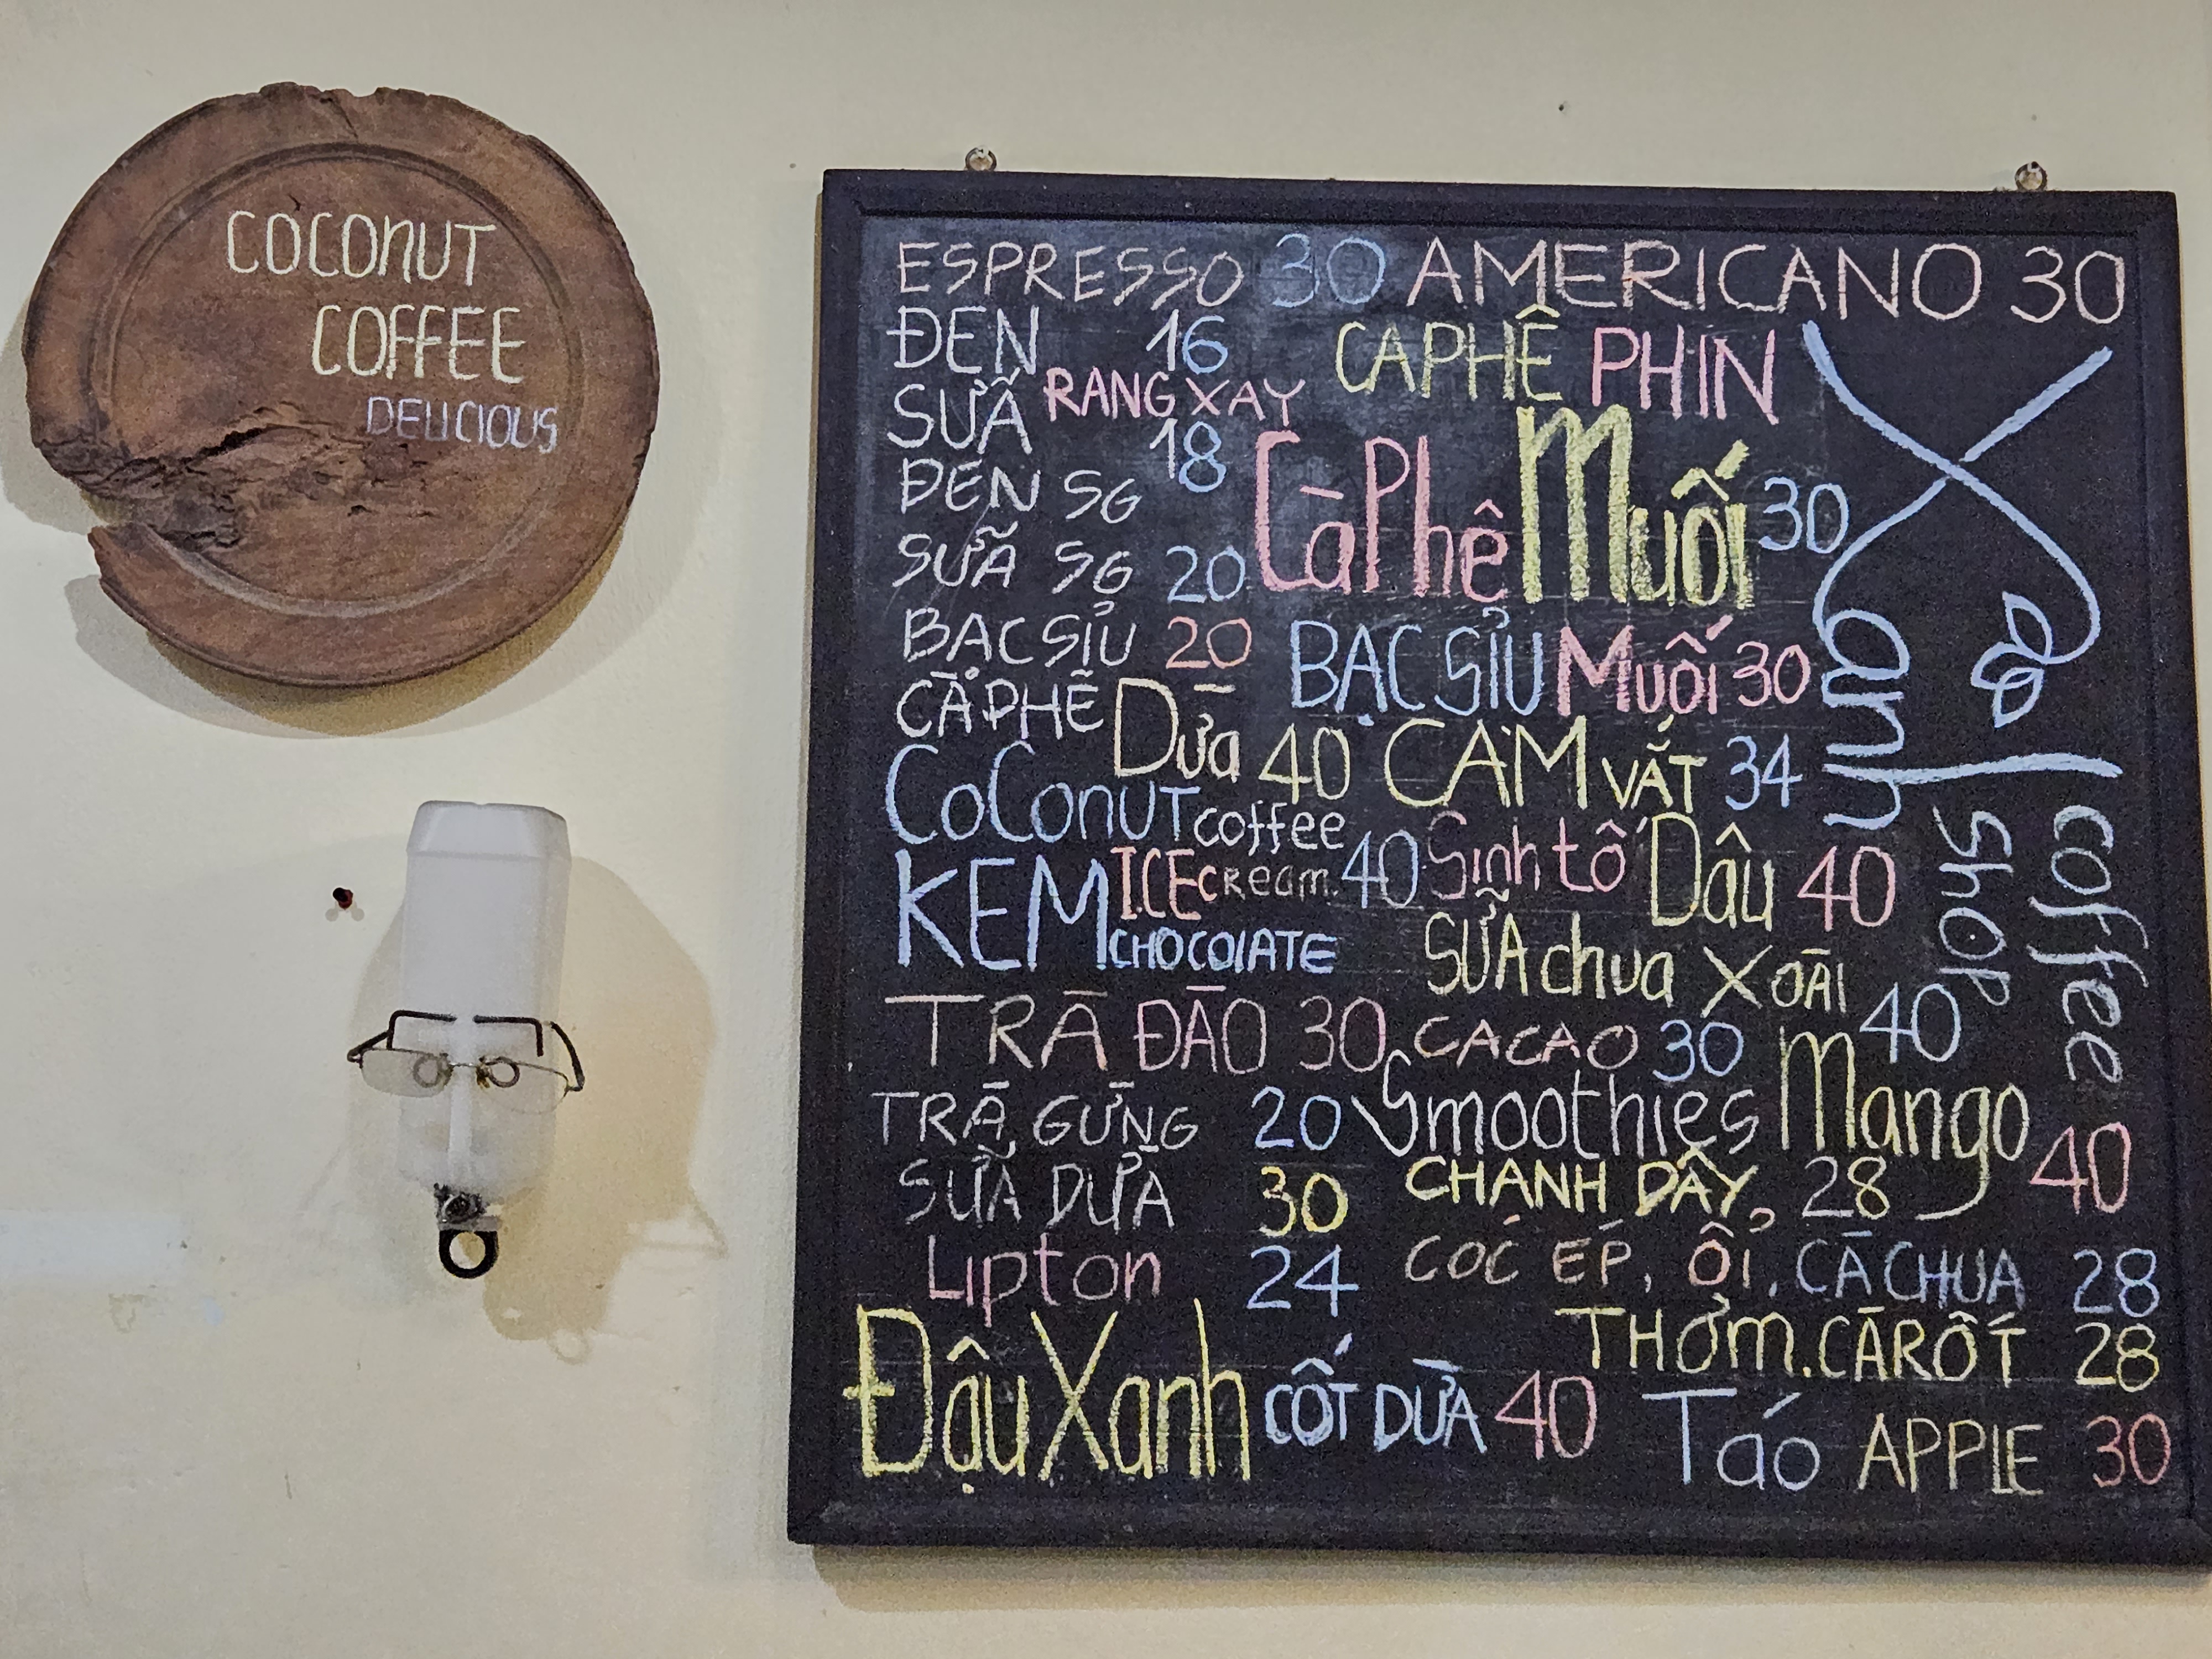 COCONUT
COFFEE
DELICIOUS
ESPRESSO 30 AMERICANO 30
ĐEN 16
SỮA RANG XAY 18
ĐEN SG
SỮA SG 20
BẠC SỈU 20
CÀ PHÊ DỪa 40
COCONUT coffee
KEM ICE cream 40
CHOCOLATE
TRÀ ĐÀO 30
TRÀ GỪNG 20
SỮA DỪA 30
Lipton 24
Đậu Xanh CỐT DỪA 40
CAPHÊ PHIN
Cà Phê Muối 30
BẠC SỈU Muối 30
CAM VẮT 34
Sinh tố Dâu 40
SỮA chua XOÀI 40
CACAO 30
Smoothies Mango 40
CHANH DÂY 28
CÓC ÉP, ỔI, CÀ CHUA 28
THƠM. CÀ RỐT 28
Táo APPLE 30
Xanh
coffee
Shop